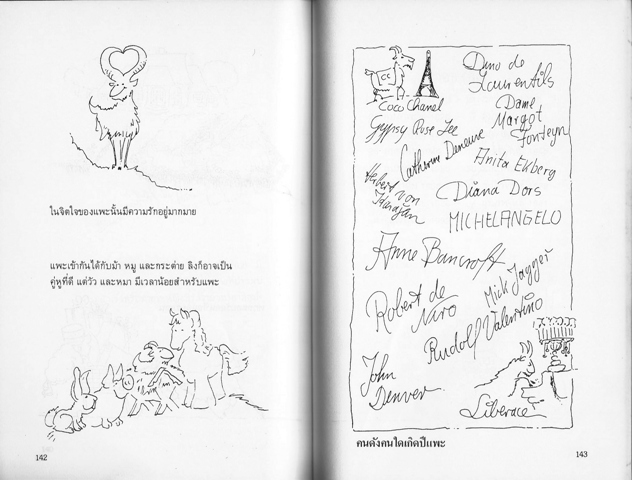 ในจิตใจของแพะนั้นมีความรักอยู่มากมาย
แพะเข้ากันได้กับม้า หมู และกระต่าย ลิงก็อาจเป็น
คู่หูที่ดี แต่วัว และหมา มีเวลาน้อยสำหรับแพะ
142
CC
Coco Chanel
Dino de
Laurentiis
Dame
Margot
Fonteyn
Gypsy Rose Lee
Catherine Deneuve
Anita Ekberg
Herbert von
Karajan
Diana Dors
MICHELANGELO
Anne Bancroft
Mick Jagger
Robert de
Niro
Rudolf Valentino
John
Denver
Liberace
คนดังคนใดเกิดปีแพะ
143